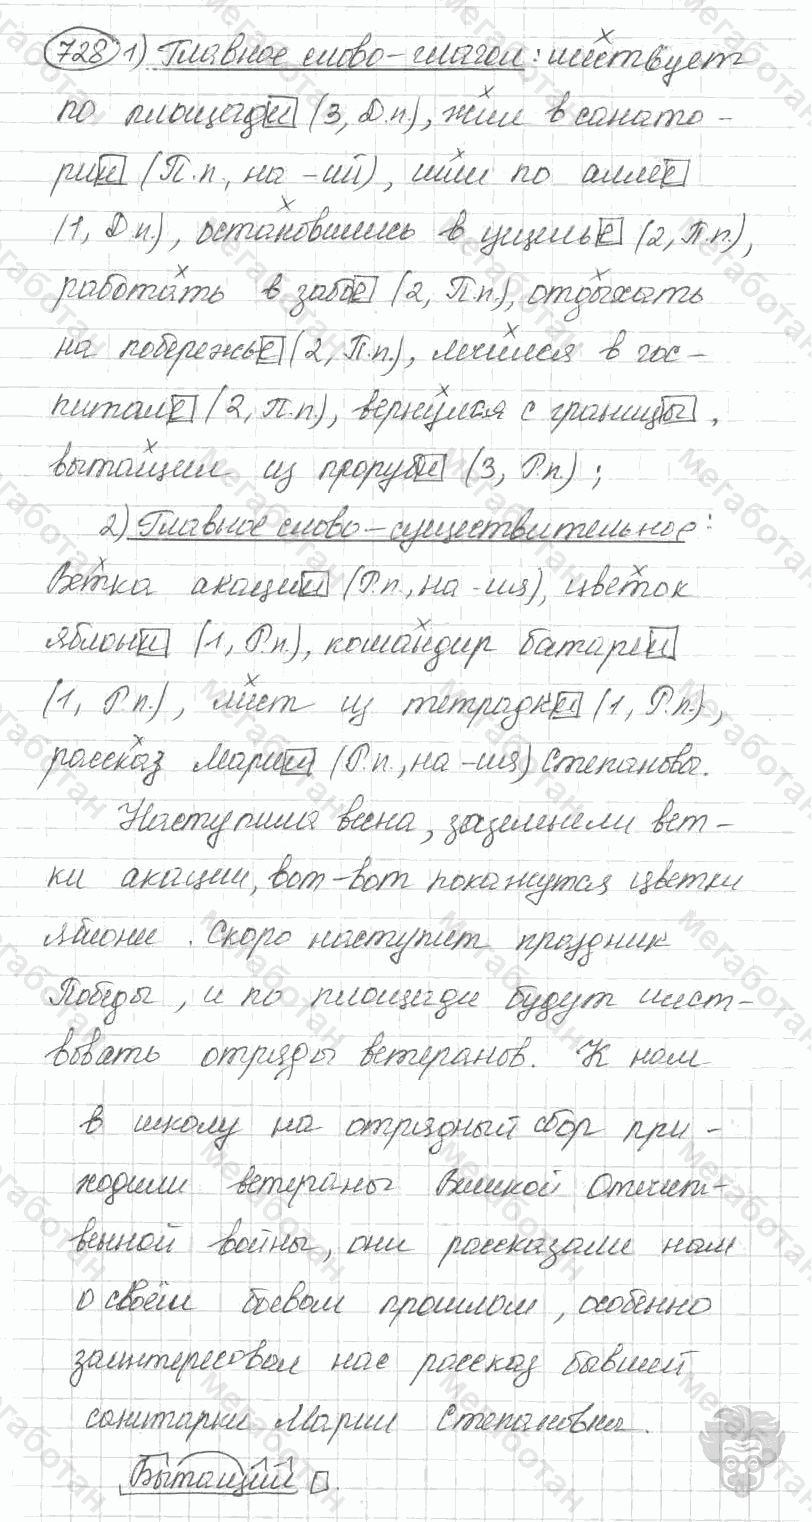 728 1) Главное слово – глагол: шествует
по площади (3, Д.п.), жил в санато-
рии (П.п., на -ий), шли по аллее
(1, Д.п.), остановились в ущелье (2, П.п.),
работать в забое (2, П.п.), отдыхать
на побережье (2, П.п.), лечился в гос-
питале (2, П.п.), вернулся с границы,
вытащил из проруби (3, Р.п.);
2) Главное слово – существительное:
Ветка акации (Р.п., на -ия), цветок
яблони (1, Р.п.), командир батареи
(1, Р.п.), лист из тетрадки (1, Р.п.),
рассказ Марии (Р.п., на -ия) Степанова.
Наступила весна, зазеленели вет-
ки акации, вот-вот покажутся цветки
яблони. Скоро наступит праздник
Победы, и по площади будут шест-
вовать отряды ветеранов. К нам
в школу на отрядный сбор при-
ходили ветераны Великой Отечест-
венной войны, они рассказали нам
о своём боевом прошлом, особенно
заинтересовал нас рассказ бывшей
санитарки Марии Степановны.
Вытащил
мегаботан